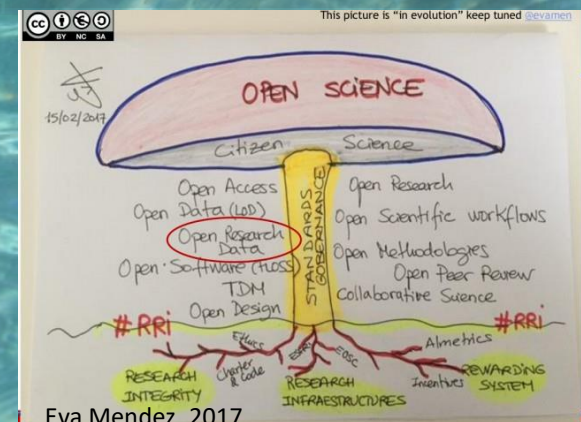 This picture is "in evolution" keep tuned @evamen
cc
BY NC SA
15/02/2017
OPEN SCIENCE
Citizen Science
Open Access
Open Data (LOD)
Open Research
Data
Open Software (FLOSS)
TDM
Open Design
STANDARDS
GOBERNANCE
Open Research
Open Scientific workflows
Open Methodologies
Open Peer Review
Collaborative Science
#RRi
#RRi
Ethics
Charter
& Code
ESFRI
EOSC
Almetrics
Incentives
RESEARCH
INTEGRITY
RESEARCH
INFRAESTRUCTURES
REWARDING
SYSTEM
Eva Mendez, 2017